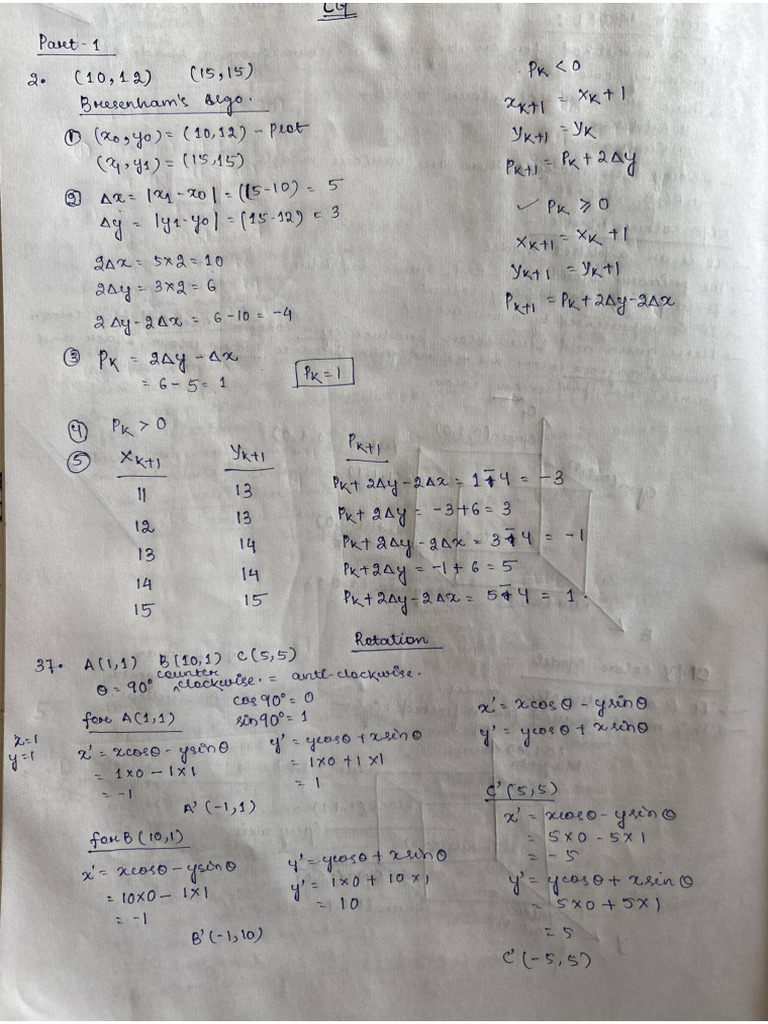 CG
Part-1
2. (10,12) (15,15)
Bresenham's algo.
① (x₀,y₀) = (10,12) - Plot
(x₁,y₁) = (15,15)
② Δx = |x₁-x₀| = (15-10) = 5
Δy = |y₁-y₀| = (15-12) = 3
2Δx = 5×2 = 10
2Δy = 3×2 = 6
2Δy-2Δx = 6-10 = -4
③ Pₖ = 2Δy - Δx
= 6-5 = 1
Pₖ=1
Pₖ < 0
xₖ₊₁ = xₖ+1
yₖ₊₁ = yₖ
Pₖ₊₁ = Pₖ+2Δy
✓ Pₖ ≥ 0
xₖ₊₁ = xₖ+1
yₖ₊₁ = yₖ+1
Pₖ₊₁ = Pₖ+2Δy-2Δx
④ Pₖ > 0
⑤ xₖ₊₁ yₖ₊₁ Pₖ₊₁
11 13 Pₖ+2Δy-2Δx = 1-4 = -3
12 13 Pₖ+2Δy = -3+6 = 3
13 14 Pₖ+2Δy-2Δx = 3-4 = -1
14 14 Pₖ+2Δy = -1+6 = 5
15 15 Pₖ+2Δy-2Δx = 5-4 = 1.
Rotation
37. A(1,1) B(10,1) C(5,5)
θ = 90° counter clockwise. = anti-clockwise.
cos90° = 0
sin90° = 1
x' = xcosθ - ysinθ
y' = ycosθ + xsinθ
for A(1,1)
x=1
y=1
x' = xcosθ - ysinθ
= 1×0 - 1×1
= -1
y' = ycosθ + xsinθ
= 1×0 + 1×1
= 1
A'(-1,1)
for B(10,1)
x' = xcosθ - ysinθ
= 10×0 - 1×1
= -1
y' = ycosθ + xsinθ
y' = 1×0 + 10×1
= 10
B'(-1,10)
C'(5,5)
x' = xcosθ - ysinθ
= 5×0 - 5×1
= -5
y' = ycosθ + xsinθ
= 5×0 + 5×1
= 5
C'(-5,5)